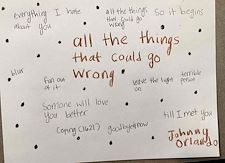 everything I hate about you
all the things that could go wrong
So it begins
all the things
that could go
wrong
blur
fun out of it
leave the light on
terrible person
Someone will love you better
(aping (1621)
goodbye/for now
till I met you
Johnny
Orlando